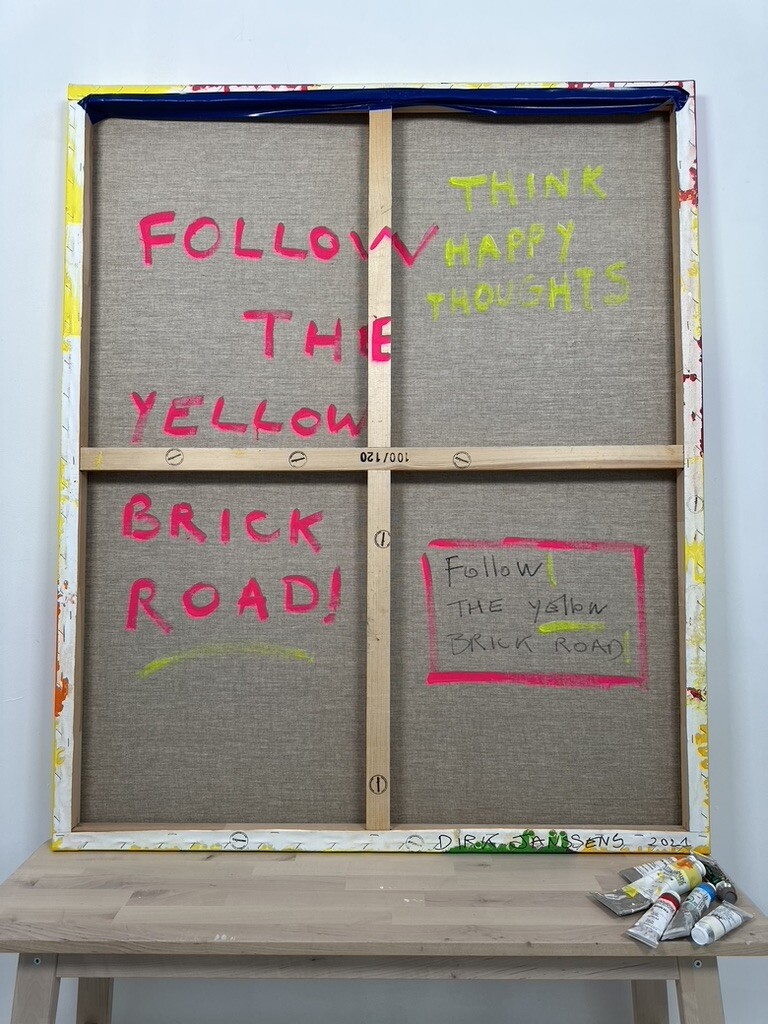 FOLLOW
THE
YELLOW
BRICK
ROAD!
THINK
HAPPY
THOUGHTS
100/120
Follow
THE yellow
BRICK ROAD
DIRK JANSSENS 2021